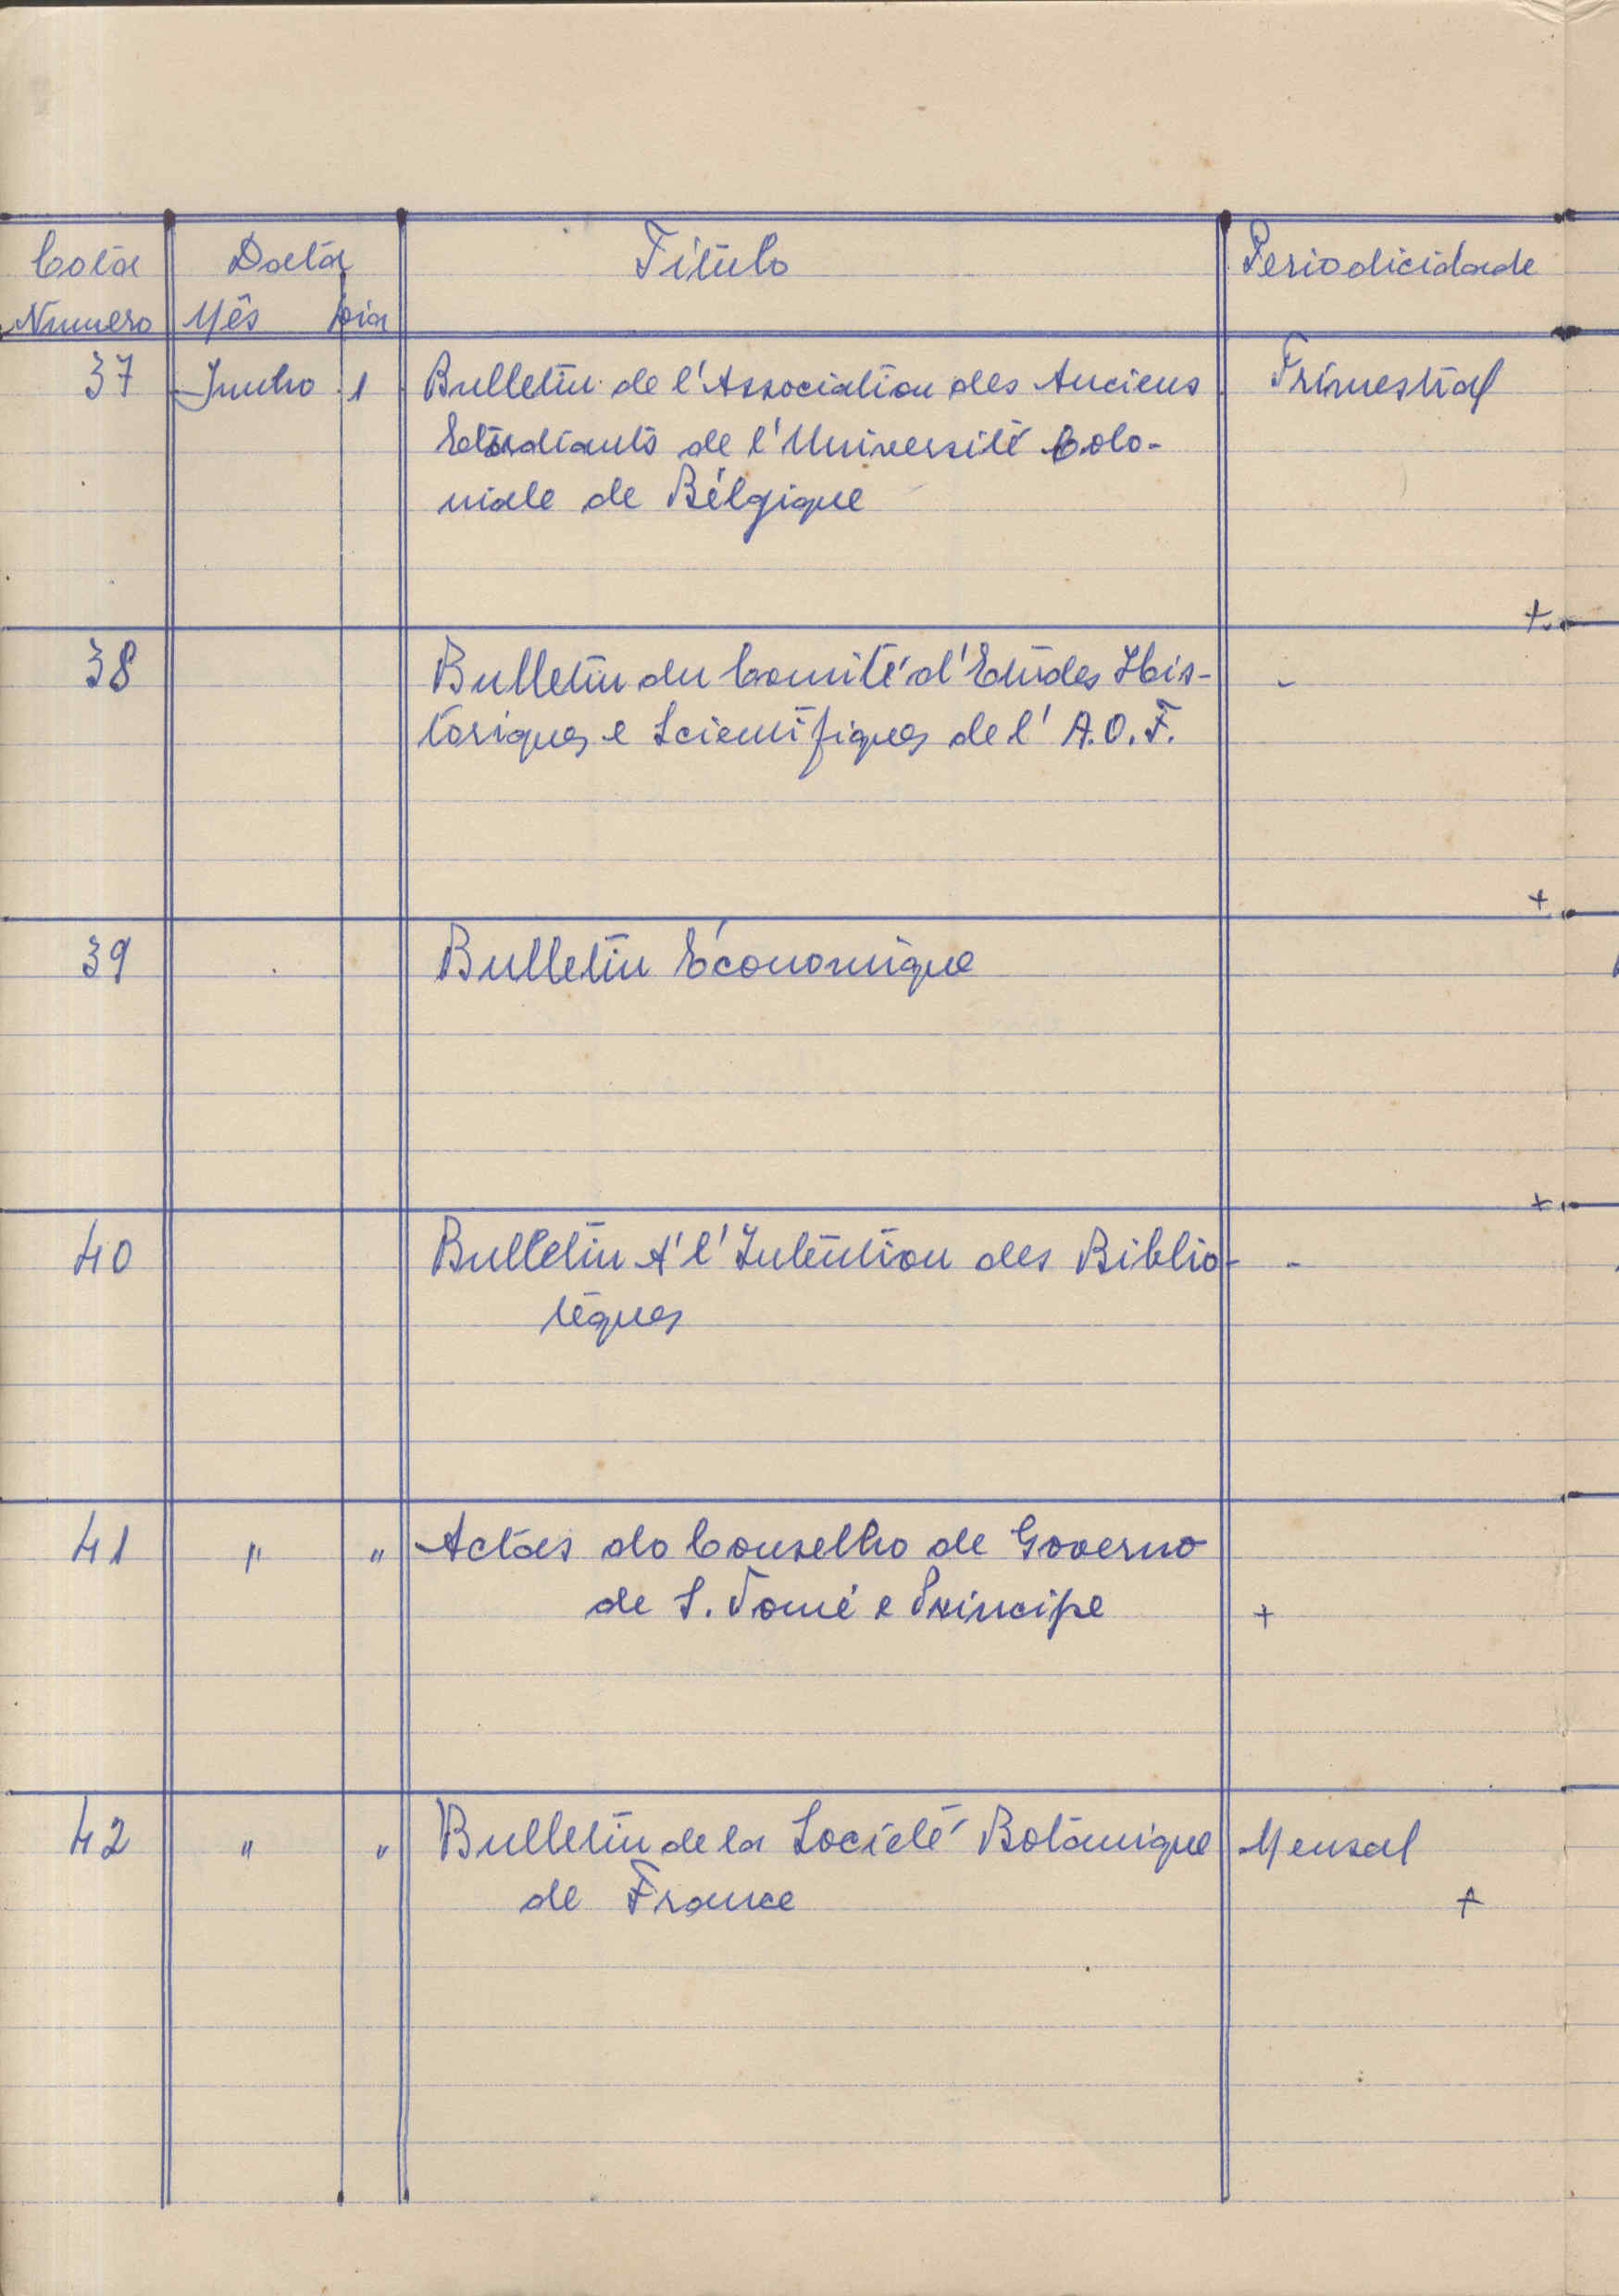 Cota Data Título Periodicidade
Numero Mês Dia
37 Junho 1 Bulletin de l'Association des Anciens Trimestral
Etudiants de l'Université Colo-
niale de Bélgique
+
38 Bulletin du Comité d'Etudes His- -
toriques e Scientifiques de l' A.O.F.
+
39 Bulletin Économique
+
40 Bulletin A' l' Intention des Biblio- -
tèques
41 " " Actas do Conselho de Governo
de S. Tomé e Principe +
42 " " Bulletin de la Société Botanique Mensal
de France +